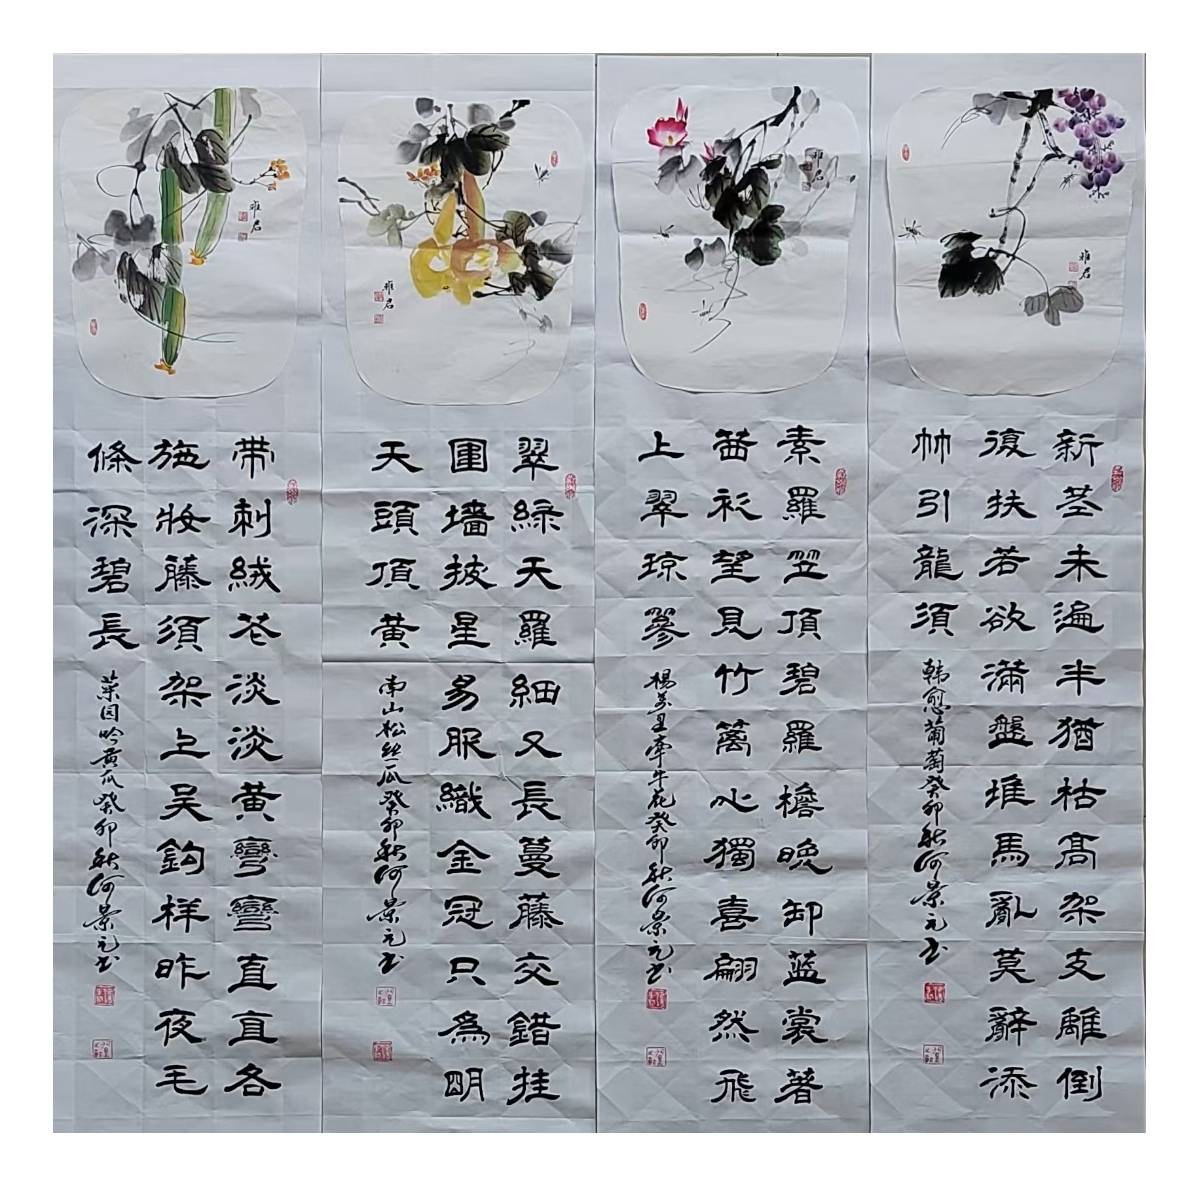 雅君
新茎未遍半猶枯髙架支離倒
復扶若欲滿盤堆馬亂莫辭添
竹引龍須
韩愈葡萄癸卯秋河景元书
雅君
素羅笠頂碧羅檐晚卸蓝裳著
茜衫望見竹篱心獨喜翩然飛
上翠琼簪
楊万里牽牛花癸卯秋河景元书
雅君
翠綠天羅細又長蔓藤交錯挂
圍墻披星易服織金冠只為明
天頭頂黄
南山松丝瓜癸卯秋河景元书
雅君
带刺绒花淡淡黄彎彎直直各
施妝藤須架上吴鈎样昨夜毛
條深碧長
菜园吟黄瓜癸卯秋河景元书